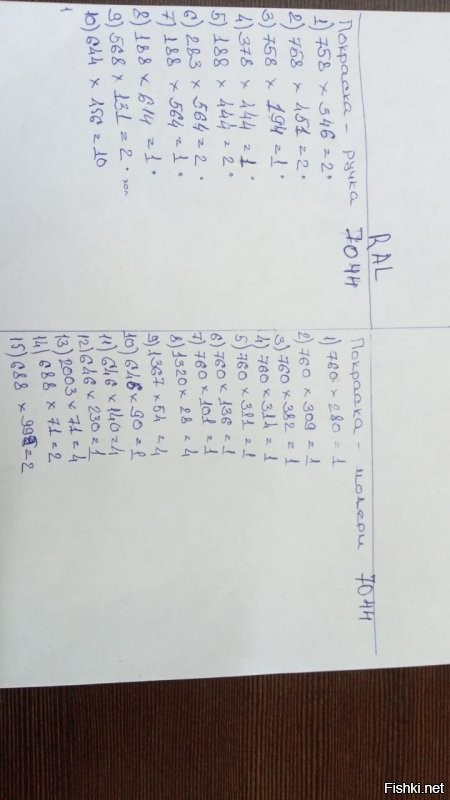 RAL
Покраска - ручка 7044
1) 758 x 346 = 2.
2) 758 x 451 = 2.
3) 758 x 194 = 1.
4) 378 x 444 = 1.
5) 188 x 444 = 2.
6) 283 x 564 = 2.
7) 188 x 564 = 1.
8) 188 x 614 = 1.
9) 568 x 131 = 2. хол
10) 644 x 456 = 10
Покраска - 7044
1) 760 x 280 = 1
2) 760 x 309 = 1
3) 760 x 382 = 1
4) 760 x 314 = 1
5) 760 x 381 = 1
6) 760 x 136 = 1
7) 760 x 101 = 1
8) 1320 x 28 = 4
9) 1367 x 54 = 4
10) 646 x 90 = 2
11) 646 x 140 = 4
12) 646 x 230 = 1
13) 2003 x 71 = 4
14) 688 x 71 = 2
15) 688 x = 2
Fishki.net